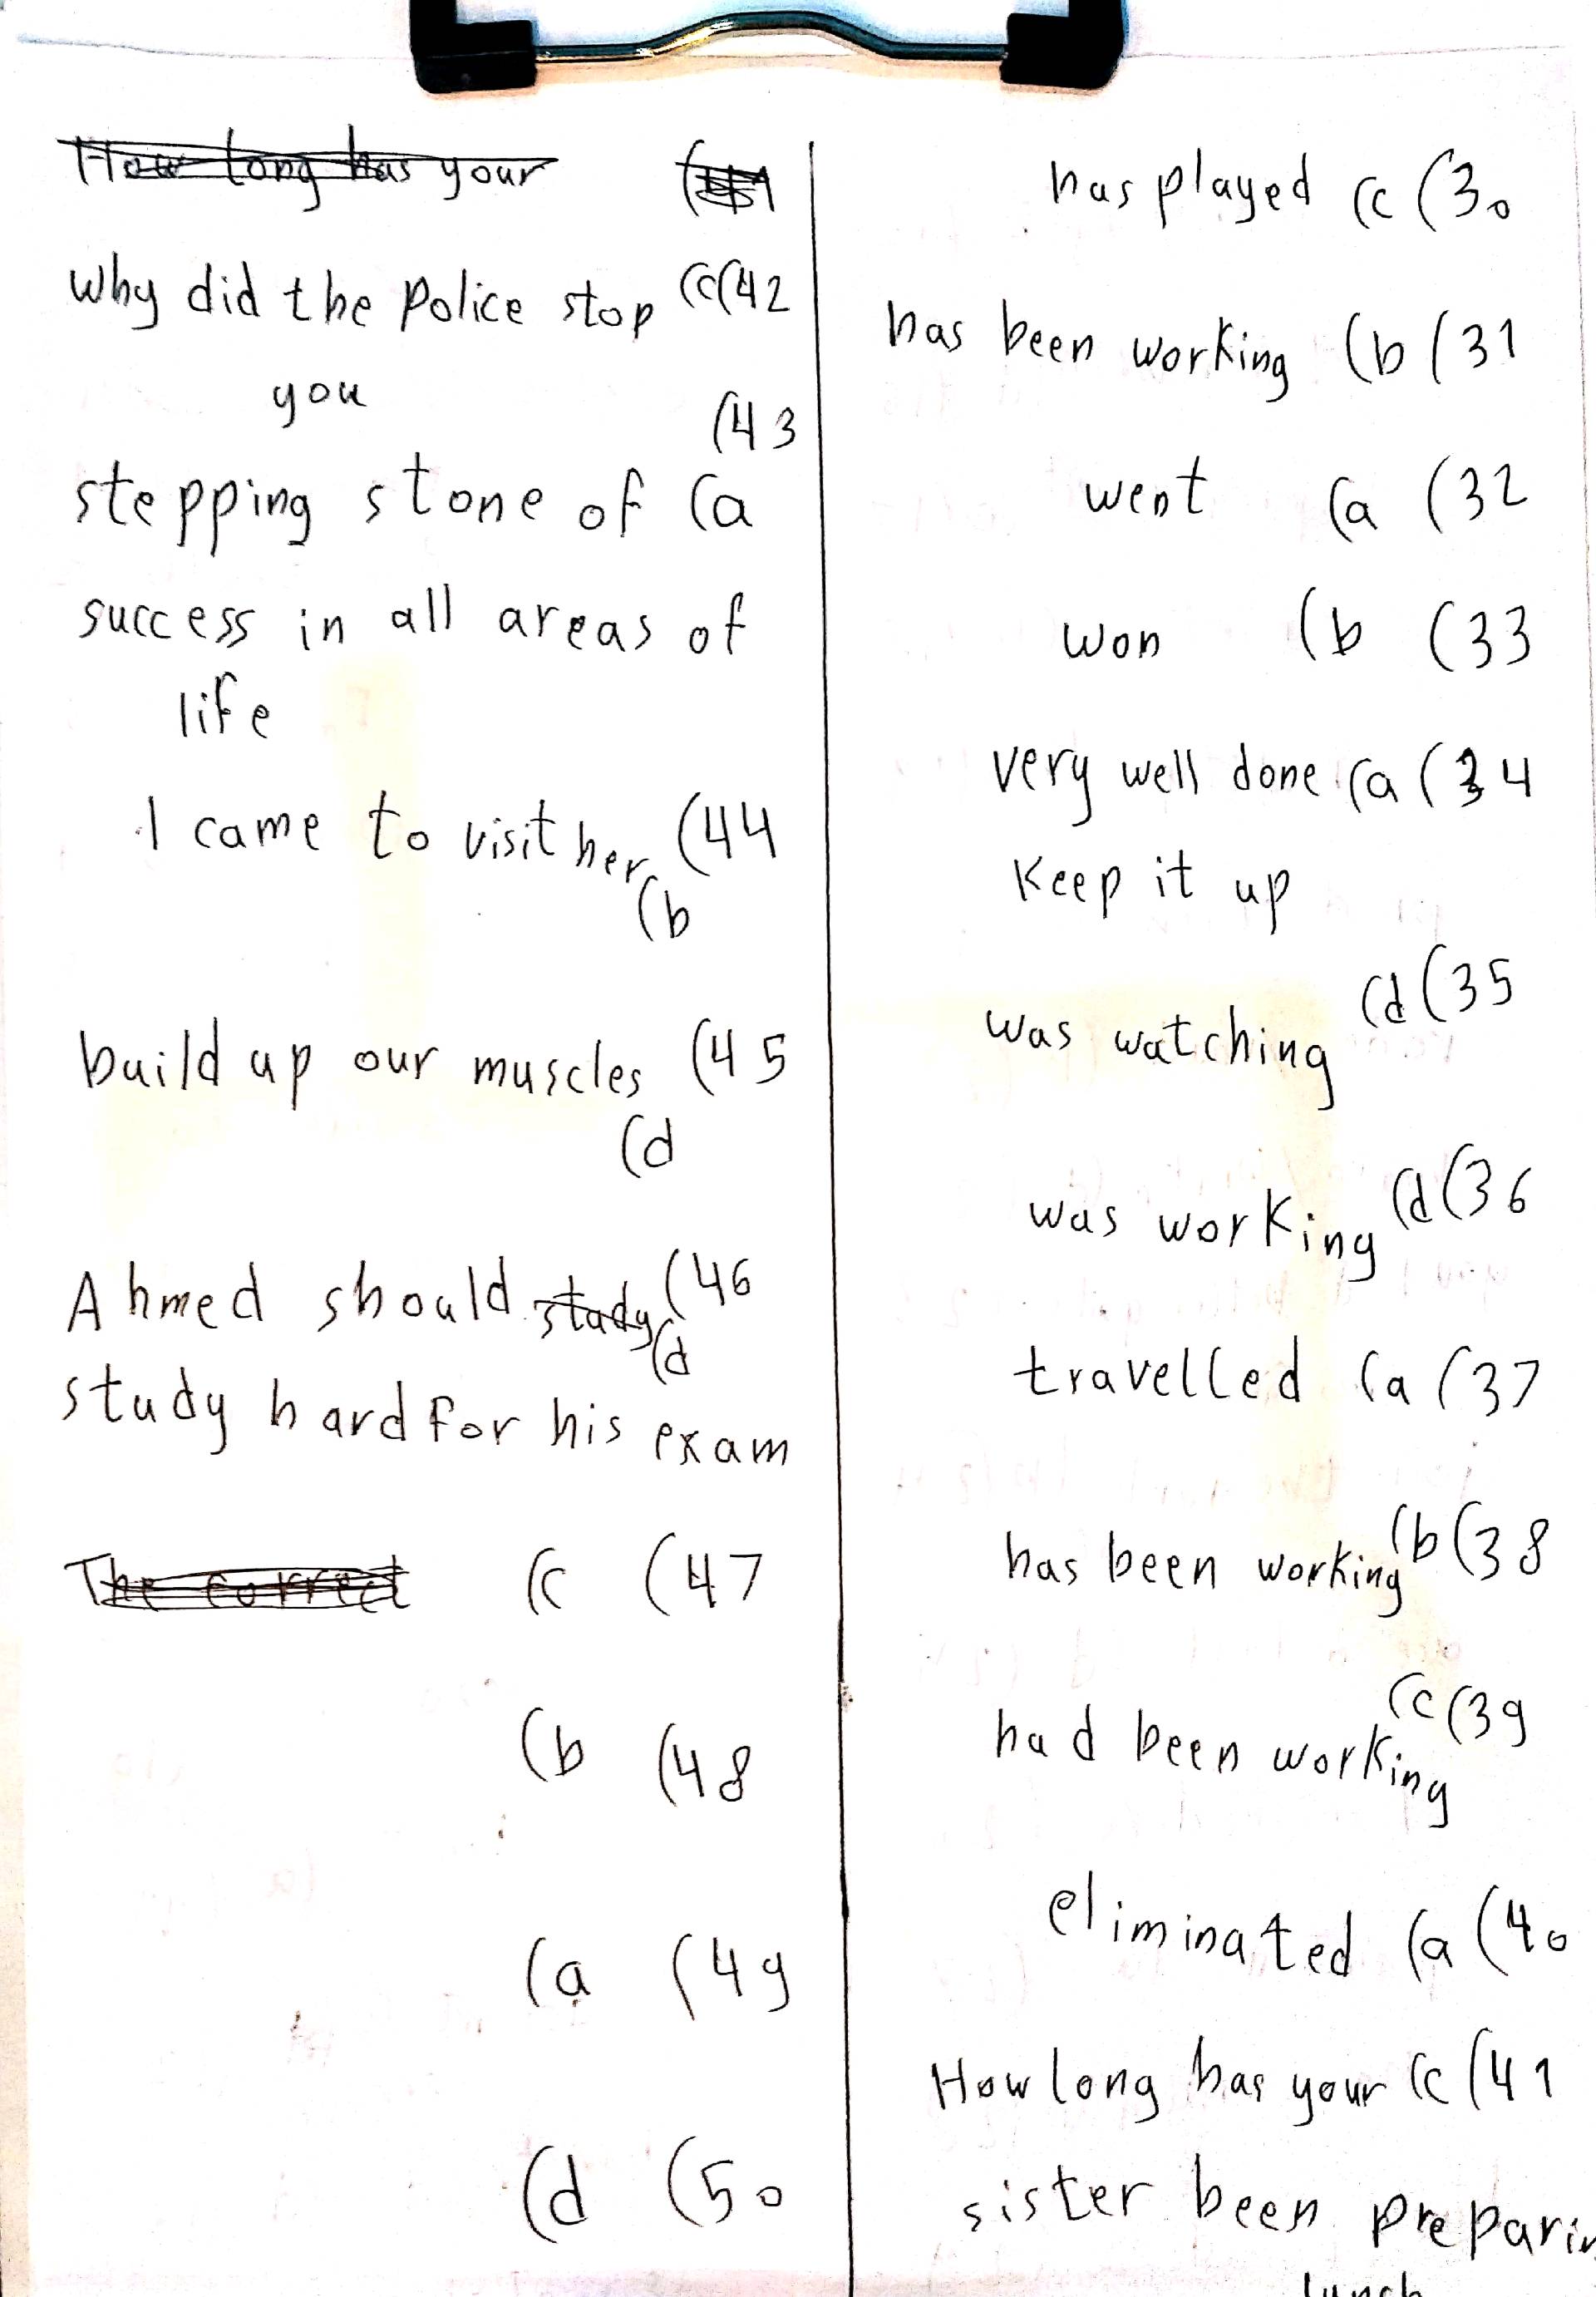 has played (c (30
has been working (b (31
went (a (32
won (b (33
very well done (a (34
Keep it up
was watching (d (35
was working (d (36
travelled (a (37
has been working (b (38
had been working (c (39
eliminated (a (40
How long has your (c (41
sister been preparin
lunch
How long has your
why did the police stop (c (42
you
(43
stepping stone of (a
success in all areas of
life
I came to visit her (44
(b
build up our muscles (45
(d
Ahmed should study (46
(d
study hard for his exam
The correct (c (47
(b (48
(a (49
(d (50